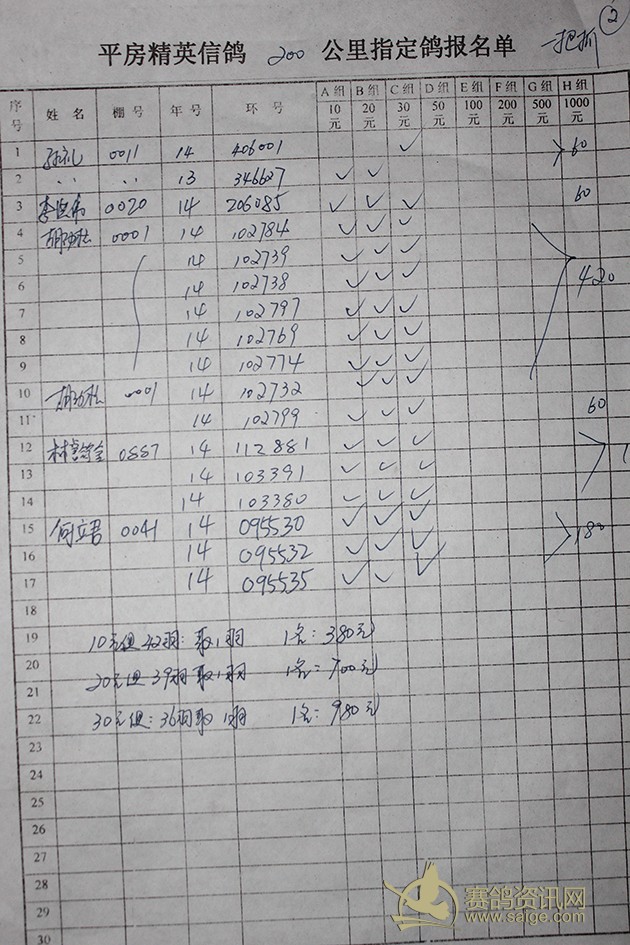 ②
平房精英信鸽 200 公里指定鸽报名单 一把抓
序号 姓名 棚号 年号 环号 A组 10元 B组 20元 C组 30元 D组 50元 E组 100元 F组 200元 G组 500元 H组 1000元
1 0011 14 406001 ✓ 60
2 〃 〃 13 346627 ✓ ✓
3 0020 14 206085 ✓ ✓ ✓ 60
4 0001 14 102784 ✓ ✓ ✓
5 14 102739 ✓ ✓ ✓
6 14 102738 ✓ ✓ ✓ 420
7 14 102797 ✓ ✓ ✓
8 14 102769 ✓ ✓ ✓
9 14 102774 ✓ ✓ ✓
10 0001 14 102732 ✓ ✓ ✓
11 14 102799 ✓ ✓ ✓ 60
12 0887 14 112881 ✓ ✓ ✓
13 14 103391 ✓ ✓ ✓
14 14 103380 ✓ ✓ ✓
15 何立君 0041 14 095530 ✓ ✓ ✓ 180
16 14 095532 ✓ ✓ ✓
17 14 095535 ✓ ✓ ✓
18
19 10元组 42羽: 取1羽 1名: 380元
20 20元组 39羽 取1羽 1名: 700元
21
22 30元组: 36羽取 1羽 1名: 980元
23
24
25
26
27
28
29
30
赛鸽资讯网
www.saige.com